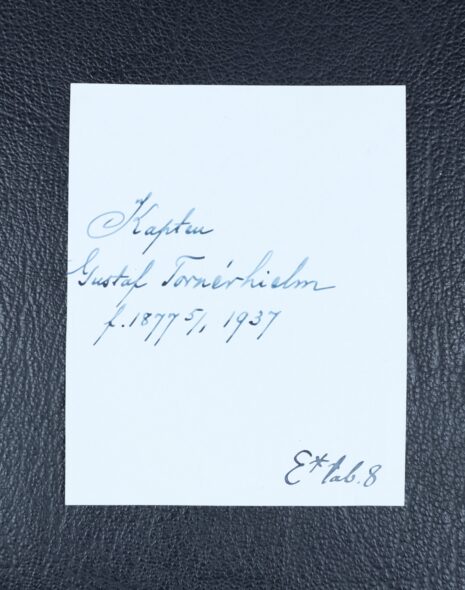 Kapten
Gustaf Tornérhielm
f. 1877 5/1 1937
E* tab. 8